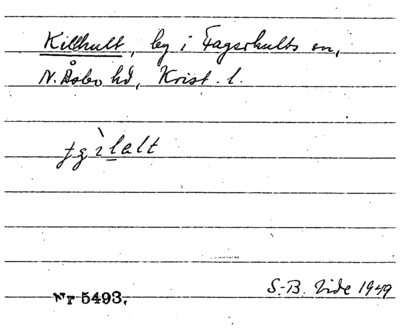 Killhult, by i Fagerhults sn,
N. Åsbo hd, Krist. l.
Nr 5493.
S.-B. Vide 1949